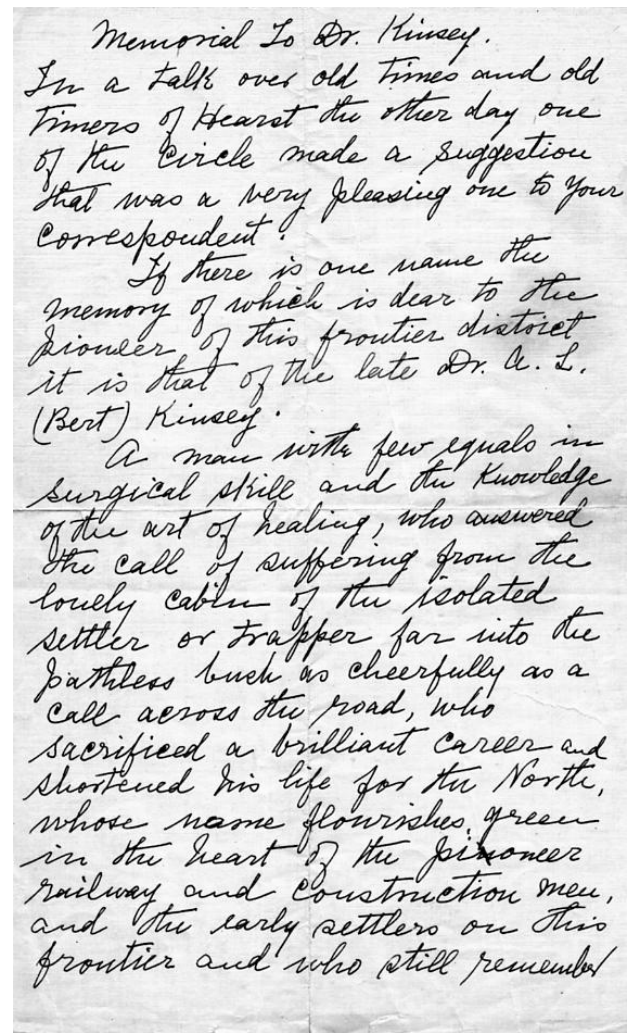 Memorial To Dr. Kinsey.
In a talk over old times and old
timers of Hearst the other day one
of the circle made a suggestion
that was a very pleasing one to your
correspondent.
If there is one name the
memory of which is dear to the
pioneer of this frontier district
it is that of the late Dr. A. L.
(Bert) Kinsey.
A man with few equals in
surgical skill and the knowledge
of the art of healing, who answered
the call of suffering from the
lonely cabin of the isolated
settler or trapper far into the
pathless bush as cheerfully as a
call across the road, who
sacrificed a brilliant career and
shortened his life for the North,
whose name flourishes green
in the heart of the pioneer
railway and construction men,
and the early settlers on this
frontier and who still remember